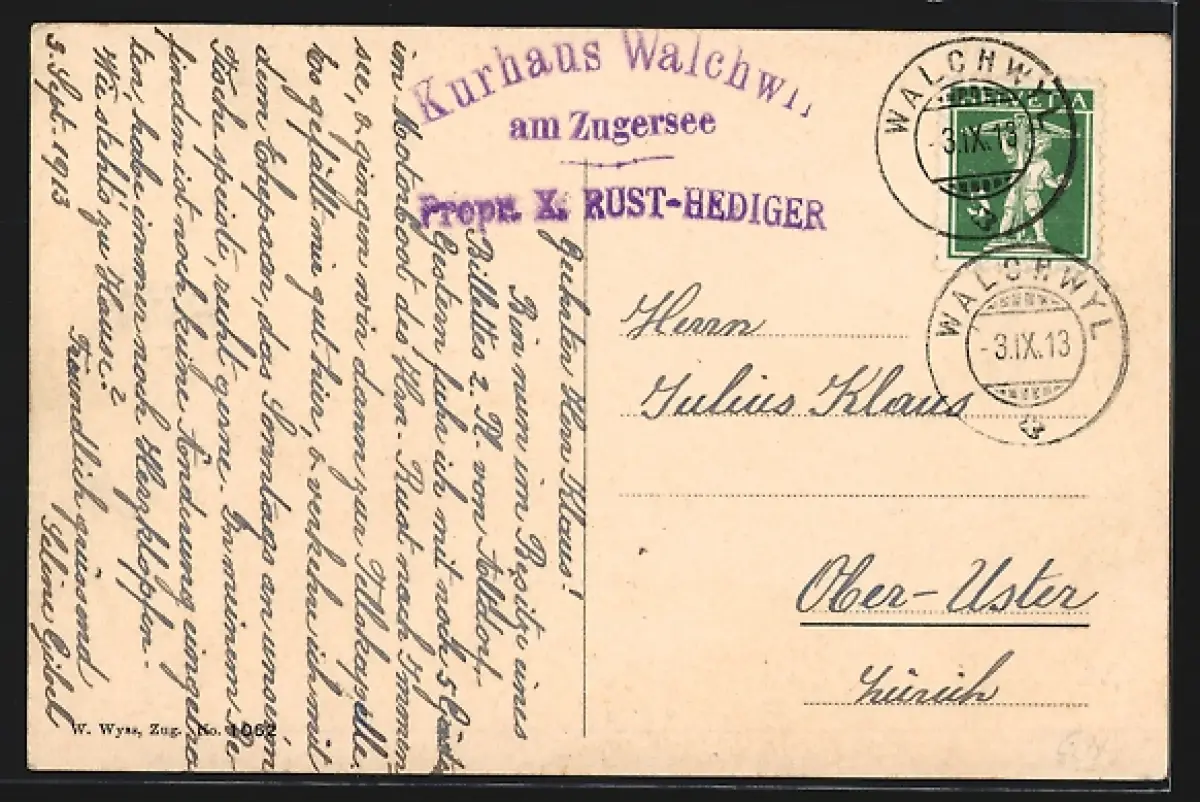 Kurhaus Walchwil
am Zugersee
Propr. X. RUST-HEDIGER
HELVETIA
WALCHWYL
-3.IX.13
WALCHWYL
-3.IX.13
Herrn
Julius Klaus
Ober-Uster
Zürich
Geehrter Herr Klaus!
Bin nun im Besitze eines
Billettes 2. Kl. von Altdorf.
Gestern fuhr ich mit noch 5 Gästen
im Motorboot des Hrn. Rust nach Immen
see, & gingen wir dann zur Tellskapelle.
Es gefällt mir gut hier, & verkehre ich mit
dem Ehepaar, das Sonntags an unserm
Tische speiste, recht gerne. In meinem Be
finden ist noch keine Änderung eingetre
ten, habe immer noch Herzklopfen.-
Wie steht's zu Hause?
Freundlich grüssend
3. Sept. 1913
W. Wyss, Zug. No. 1062